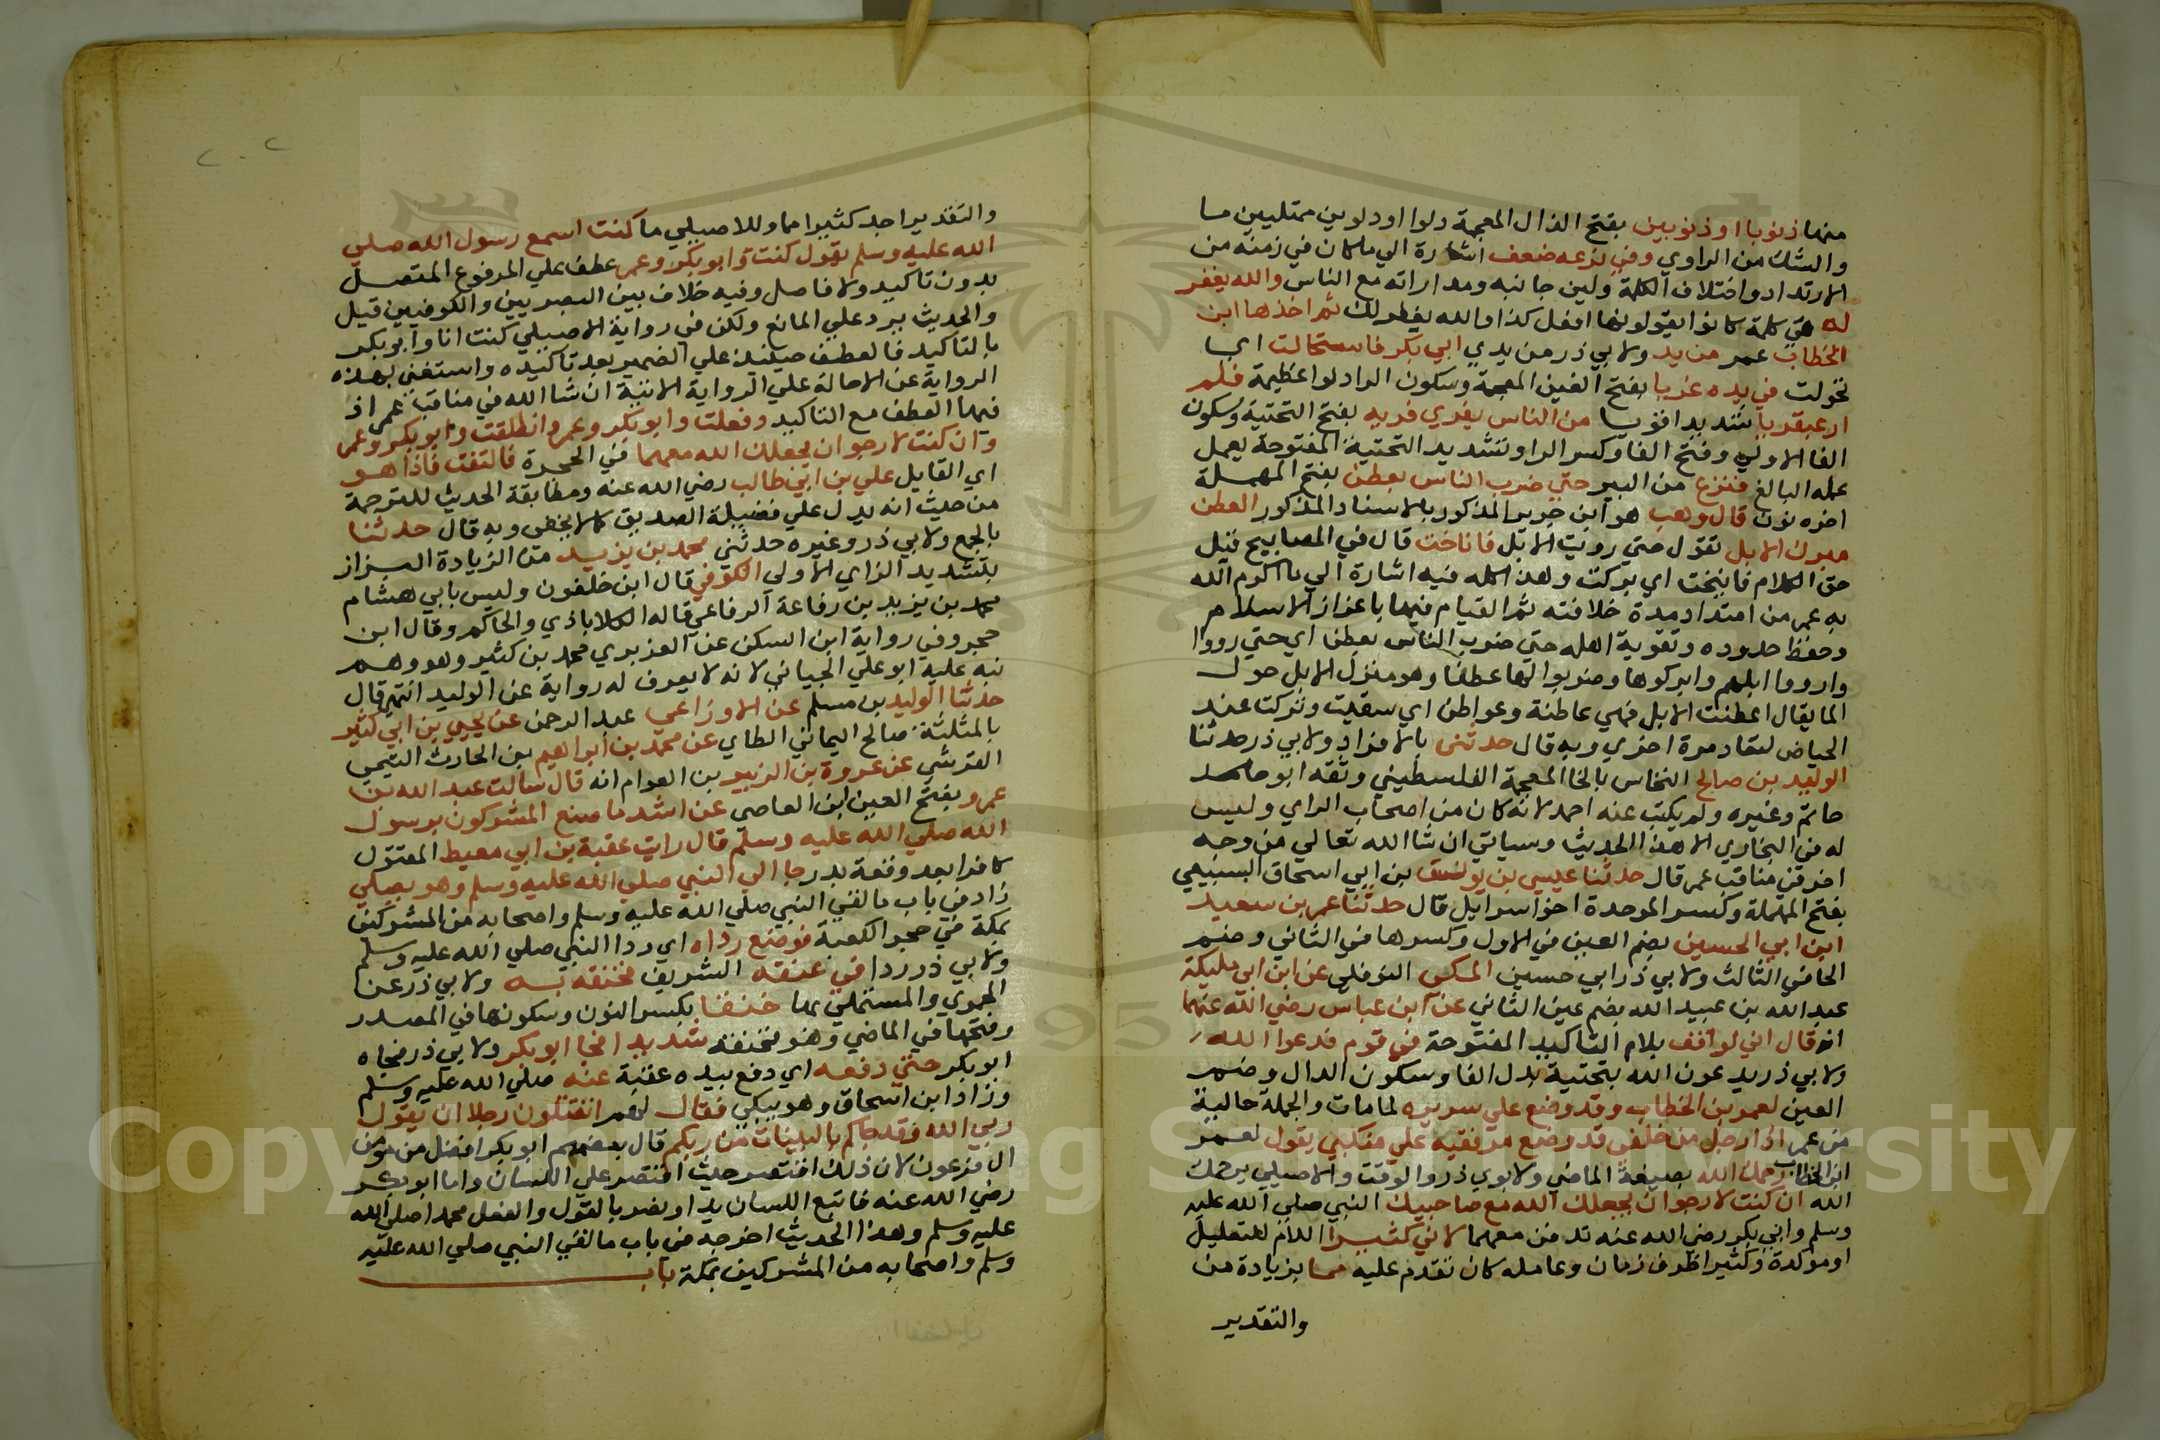 منها ذنوبا او ذنوبين بفتح الذال المعجمة دلوا او دلوين ممتليين ما
والشك من الراوي وفي نزعه ضعف اشارة الي ما كان في زمنه من
الارتداد واختلاف الكلمة ولين جانبه ومداراته مع الناس والله يغفر
له هي كلمة كانوا يقولونها افعل كذا والله يغفر لك ثم اخذها ابن
الخطاب عمر من يد ولابي ذر من يدي ابي بكر فاستحالت اي
تحولت في يده غربا بفتح الغين المعجمة وسكون الرا دلوا عظيمة فلم
ار عبقريا شديدا قويا من الناس يفري فريه بفتح التحتية وسكون
الفا الاولي وفتح الفا وكسر الرا وتشديد التحتية المفتوحة يعمل
عمله البالغ فنزع من البير حتي ضرب الناس بعطن بفتح المهملة
اخره نون قال وهب هو ابن جرير المذكور بالاسناد المذكور العطن
مبرك الابل تقول حتي رويت الابل فاناخت قال في المصابيح قيل
حق الكلام فانيخت اي بركت وهذا كله فيه اشارة الي ما اكرم الله
به عمر من امتداد مدة خلافته ثم القيام فيها باعزاز الاسلام
وحفظ حدوده وتقوية اهله حتي ضرب الناس بعطن اي حتي رووا
وارووا ابلهم وابركوها وضربوا لها عطنا وهو منزل الابل حول
الما يقال اعطنت الابل فهي عاطنة وعواطن اي سقيت وتركت عند
الحياض لتعاد مرة اخري وبه قال حدثني بالافراد ولابي ذر حدثنا
الوليد بن صالح النخاس بالخا المعجمة الفلسطيني وثقه ابو
حاتم وغيره ولم يكتب عنه احمد لانه كان من اصحاب الراي وليس
له في البخاري الا هذا الحديث وسياتي ان شا الله تعالي من وجه
اخر في مناقب عمر قال حدثنا عيسي بن يونس بن ابي اسحاق السبيعي
بفتح المهملة وكسر الموحدة اخو اسرايل قال حدثنا عمر بن سعيد
ابن ابي الحسين بضم العين في الاول وكسرها في الثاني وضم
الحا في الثالث ولابي ذر ابي حسين المكي النوفلي عن ابن ابي مليكة
عبد الله بن عبيد الله بضم عين الثاني عن ابن عباس رضي الله عنهما
انه قال اني لواقف بلام التاكيد المفتوحة في قوم فدعوا الله
ولابي ذر يدعون الله بتحتية بدل الفا وسكون الدال وضم
العين لعمر بن الخطاب وقد وضع علي سريره لما مات والجملة حالية
من عمر اذا رجل من خلفي قد وضع مرفقيه علي منكبي يقول لعمر
ابن الخطاب رحمك الله بصيغة الماضي ولابوي ذر والوقت والاصيلي يرحمك
الله ان كنت لارجو ان يجعلك الله مع صاحبيك النبي صلي الله عليه
وسلم وابي بكر رضي الله عنه تدفن معهما لاني كثيرا اللام للتعليل
او موكدة وكثيرا ظرف زمان وعامله كان تقدم عليه مما بزيادة من
والتقدير
٢٠٢
والتقدير اجد كثيرا مما وللاصيلي ما كنت اسمع رسول الله صلي
الله عليه وسلم يقول كنت وابو بكر وعمر عطف علي المرفوع المتصل
بدون تاكيد ولا فاصل وفيه خلاف بين البصريين والكوفيين قيل
والحديث يرد علي المانع ولكن في رواية الاصيلي كنت انا وابو بكر
بالتاكيد فالعطف حينيذ علي الضمير بعد تاكيده واستغني بهذه
الرواية عن الاحالة علي الرواية الاتية ان شا الله في مناقب عمر اذ
فيها العطف مع التاكيد وفعلت وابو بكر وعمر وانطلقت وابو بكر وعمر
وان كنت لارجو ان يجعلك الله معهما في الحجرة فالتفت فاذا هو
اي القايل علي بن ابي طالب رضي الله عنه ومطابقة الحديث للترجمة
من حيث انه يدل علي فضيلة الصديق كما لا يخفي وبه قال حدثنا
بالجمع ولابي ذر وغيره حدثني محمد بن يزيد من الزيادة البزاز
بتشديد الزاي الاولي الكوفي قال ابن خلفون وليس بابي هشام
محمد بن يزيد بن رفاعة الرفاعي قاله الكلاباذي والحاكم وقال ابن
حجر وفي رواية ابن السكن عن الفربري محمد بن كثير وهو وهم
نبه عليه ابو علي الجياني لانه لا يعرف له رواية عن الوليد انتهي قال
حدثنا الوليد بن مسلم عن الاوزاعي عبد الرحمن عن يحيي بن ابي كثير
بالمثلثة صالح اليماني الطاي عن محمد بن ابراهيم بن الحارث التيمي
القرشي عن عروة بن الزبير بن العوام انه قال سالت عبد الله بن
عمرو بفتح العين ابن العاصي عن اشد ما صنع المشركون برسول
الله صلي الله عليه وسلم قال رايت عقبة بن ابي معيط المقتول
كافرا بعد وقعة بدر جا الي النبي صلي الله عليه وسلم وهو يصلي
زاد في باب ما لقي النبي صلي الله عليه وسلم واصحابه من المشركين
بمكة في حجر الكعبة فوضع رداه اي ردا النبي صلي الله عليه وسلم
ولابي ذر ردا في عنقه الشريف فخنقه به ولابي ذر عن
الحموي والمستملي بها خنقا بكسر النون وسكونها في المصدر
وفتحها في الماضي وهو فخنقه شديدا فجا ابو بكر ولابي ذر فجاه
ابو بكر حتي دفعه اي دفع بيده عقبة عنه صلي الله عليه وسلم
وزاد ابن اسحاق وهو يبكي فقال لهم اتقتلون رجلا ان يقول
ربي الله وقد جاكم بالبينات من ربكم قال بعضهم ابو بكر افضل من مومن
ال فرعون لان ذلك اقتصر حيث اقتصر علي اللسان واما ابو بكر
رضي الله عنه فاتبع اللسان يدا ونصر بالقول والفعل محمدا صلي الله
عليه وسلم وهذا الحديث اخرجه في باب ما لقي النبي صلي الله عليه
وسلم واصحابه من المشركين بمكة باب